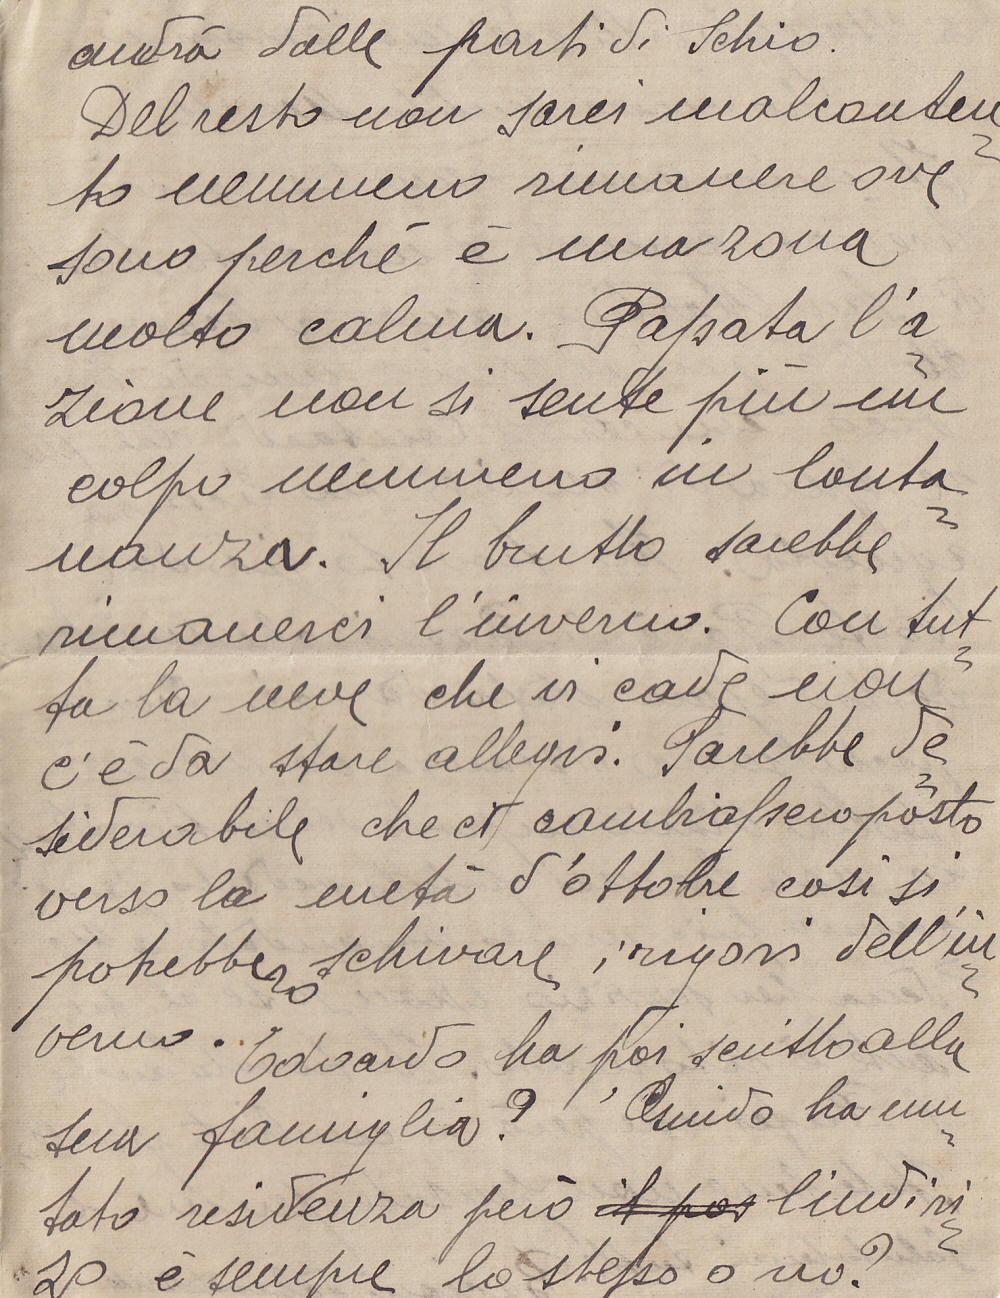 andrà dalle parti di Schio.
Del resto non sarei malconten
to nemmeno rimanere ove
sono perché è una zona
molto calma. Passata l'a
zione non si sente più un
colpo nemmeno in lonta
nanza. Il brutto sarebbe
rimanerci l'inverno. Con tut
ta la neve che vi cade non
c'è da stare allegri. Sarebbe de
siderabile che ci cambiassero posto
verso la metà d'ottobre così si
potrebbero schivare i rigori dell'in
verno. Edoardo ha poi scritto alla
sua famiglia? Guido ha mu
tato residenza però il pos l'indiri
zo è sempre lo stesso o no?